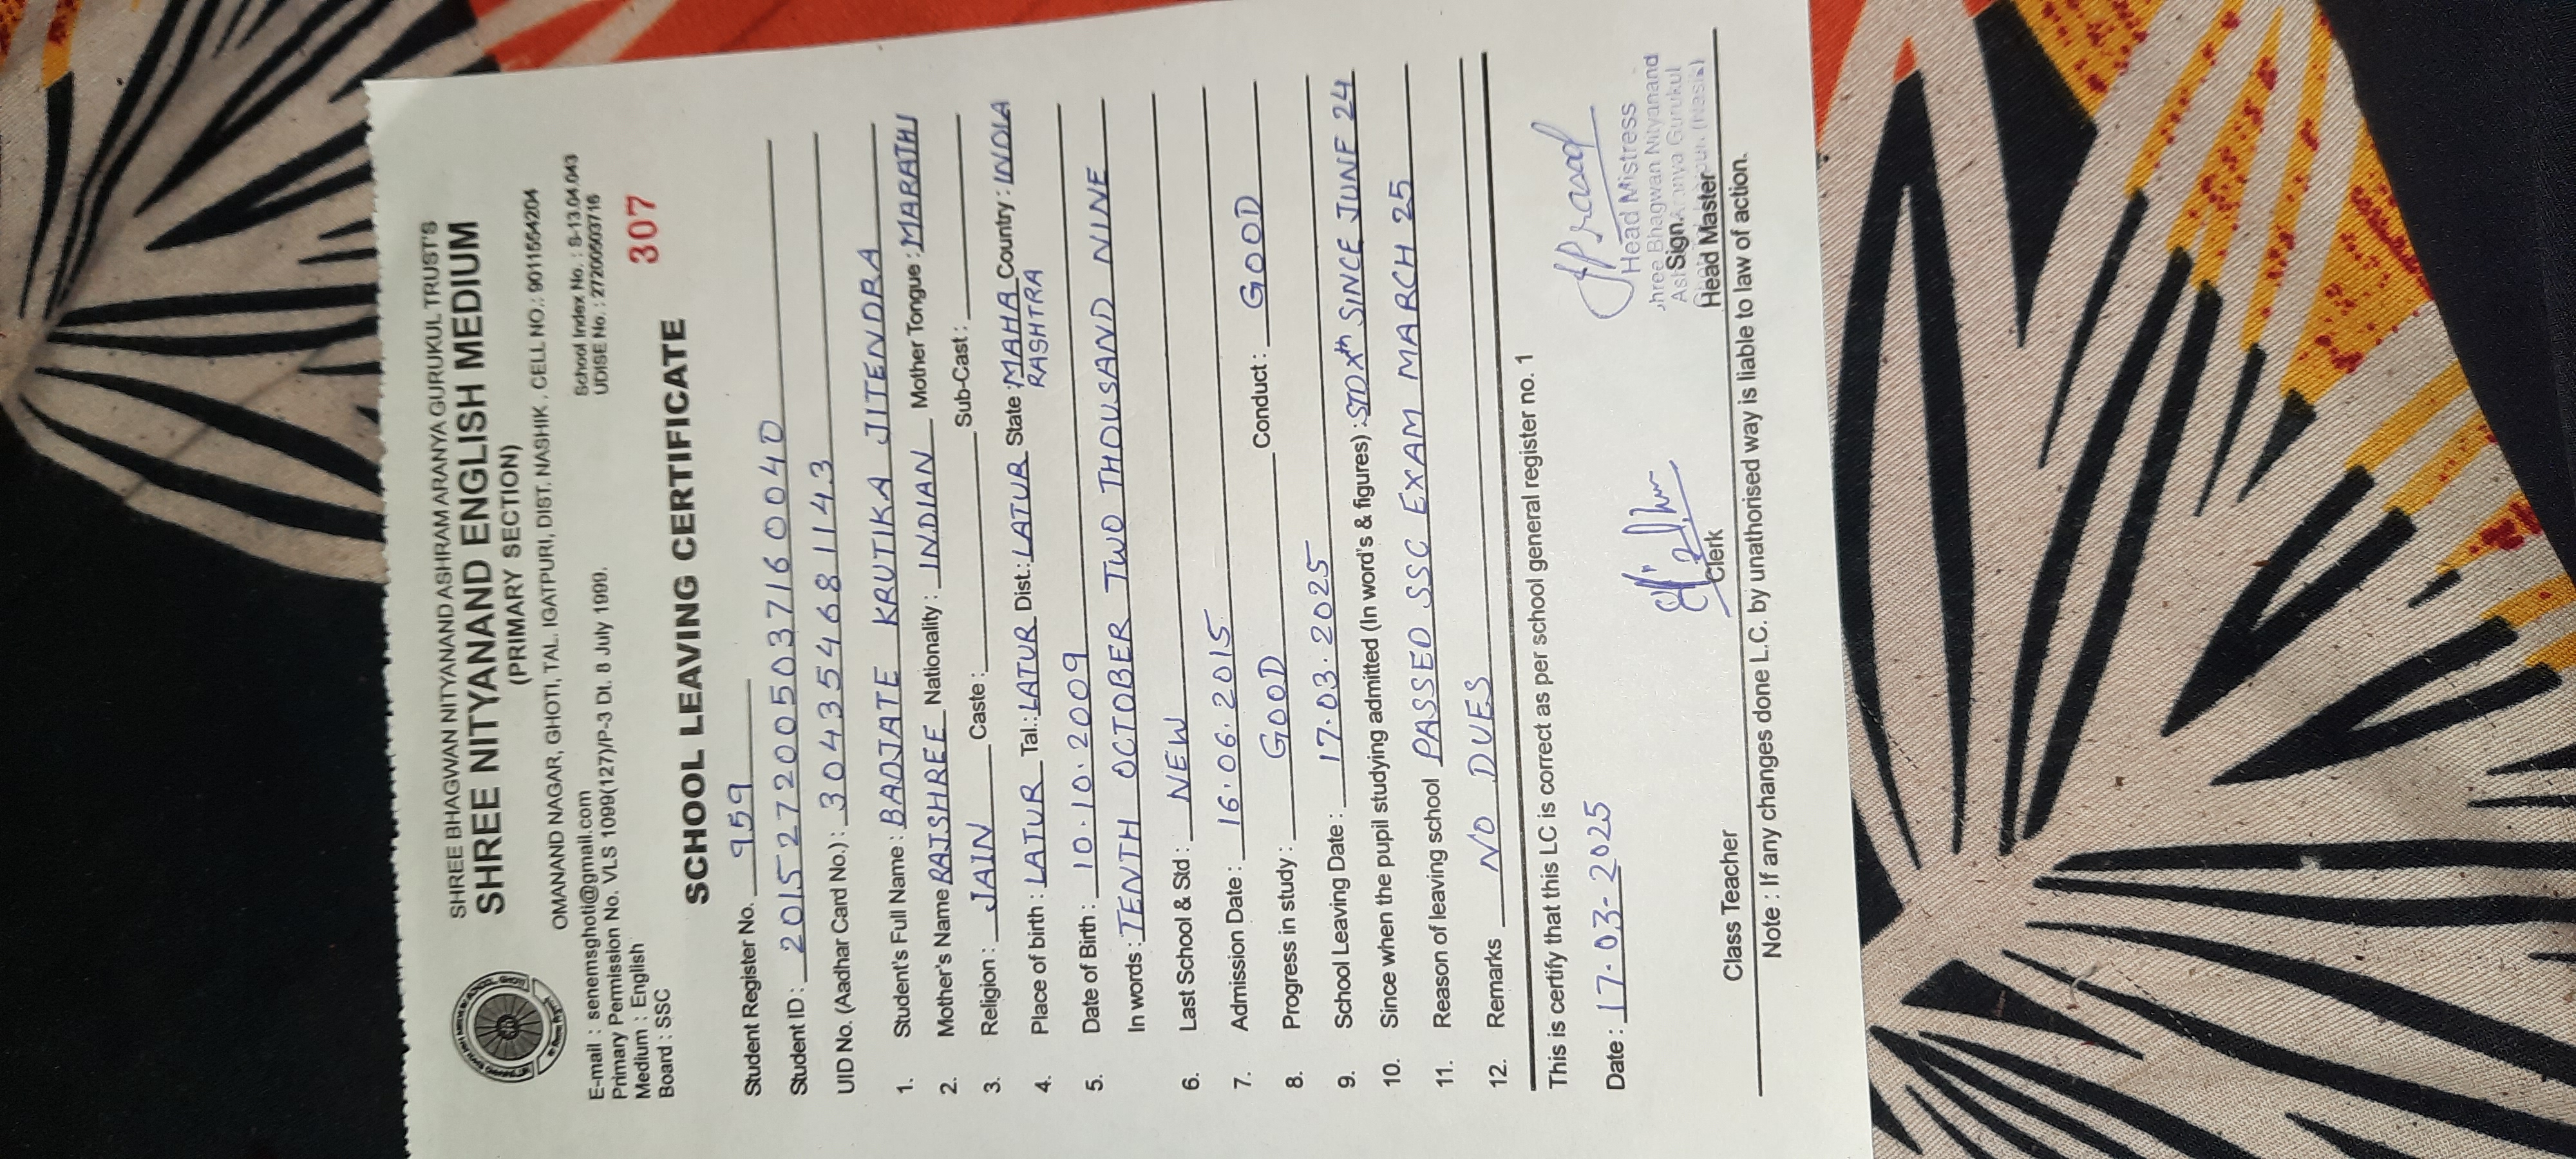 SHREE BHAGWAN NITYANAND ASHRAM ARANYA GURUKUL TRUST'S
SHREE NITYANAND ENGLISH MEDIUM
(PRIMARY SECTION)
OMANAND NAGAR, GHOTI, TAL. IGATPURI, DIST. NASHIK , CELL NO.: 9011554204
E-mail : senemsghoti@gmail.com School Index No. : S-13.04.043
Primary Permission No. VLS 1099(127)/P-3 Dt. 8 July 1999. UDISE No. : 27200503716
Medium : English
Board : SSC 307
SCHOOL LEAVING CERTIFICATE
Student Register No. 959
Student ID : 2015272005037160040
UID No. (Aadhar Card No.) : 304354681143
1. Student's Full Name : BADJATE KRUTIKA JITENDRA
2. Mother's Name RAJSHREE Nationality : INDIAN Mother Tongue : MARATHI
3. Religion : JAIN Caste : Sub-Cast :
4. Place of birth : LATUR Tal.: LATUR Dist.: LATUR State : MAHA Country : INDIA
RASHTRA
5. Date of Birth : 10.10.2009
In words : TENTH OCTOBER TWO THOUSAND NINE
6. Last School & Std : NEW
7. Admission Date : 16.06.2015
8. Progress in study : GOOD Conduct : GOOD
9. School Leaving Date : 17.03.2025
10. Since when the pupil studying admitted (In word's & figures) : STD Xth SINCE JUNE 24
11. Reason of leaving school PASSED SSC EXAM MARCH 25
12. Remarks NO DUES
This is certify that this LC is correct as per school general register no. 1
Date : 17.03-2025
Head Mistress
Shree Bhagwan Nityanand
Sign.
Gurukul
Class Teacher Clerk Head Master
Note : If any changes done L.C. by unathorised way is liable to law of action.